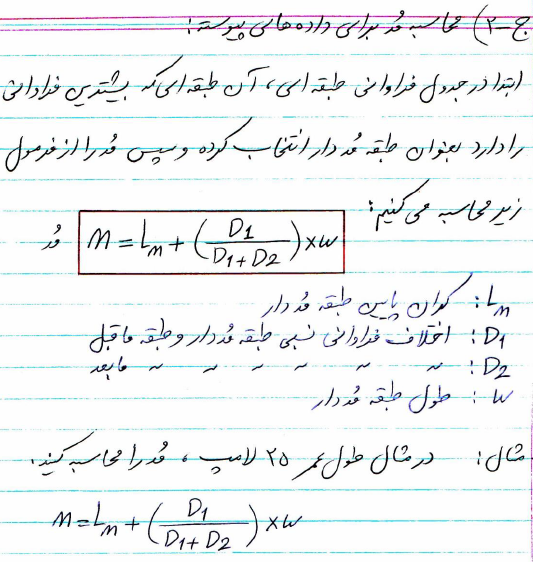 ج-۲) محاسبه مُد برای داده‌های پیوسته:
ابتدا در جدول فراوانی طبقه‌ای، آن طبقه‌ای که بیشترین فراوانی
را دارد بعنوان طبقه مُددار انتخاب کرده و سپس مُد را از فرمول
زیر محاسبه می‌کنیم:
مُد M = Lm + (D1 / (D1 + D2)) × w
Lm : کران پایین طبقه مُددار
D1 : اختلاف فراوانی نسبی طبقه مُددار و طبقه ماقبل
D2 : ~ ~ ~ ~ ~ ~ مابعد
w : طول طبقه مُددار
مثال: در مثال طول عمر ۲۵ لامپ، مُد را محاسبه کنید.
M = Lm + (D1 / (D1 + D2)) × w